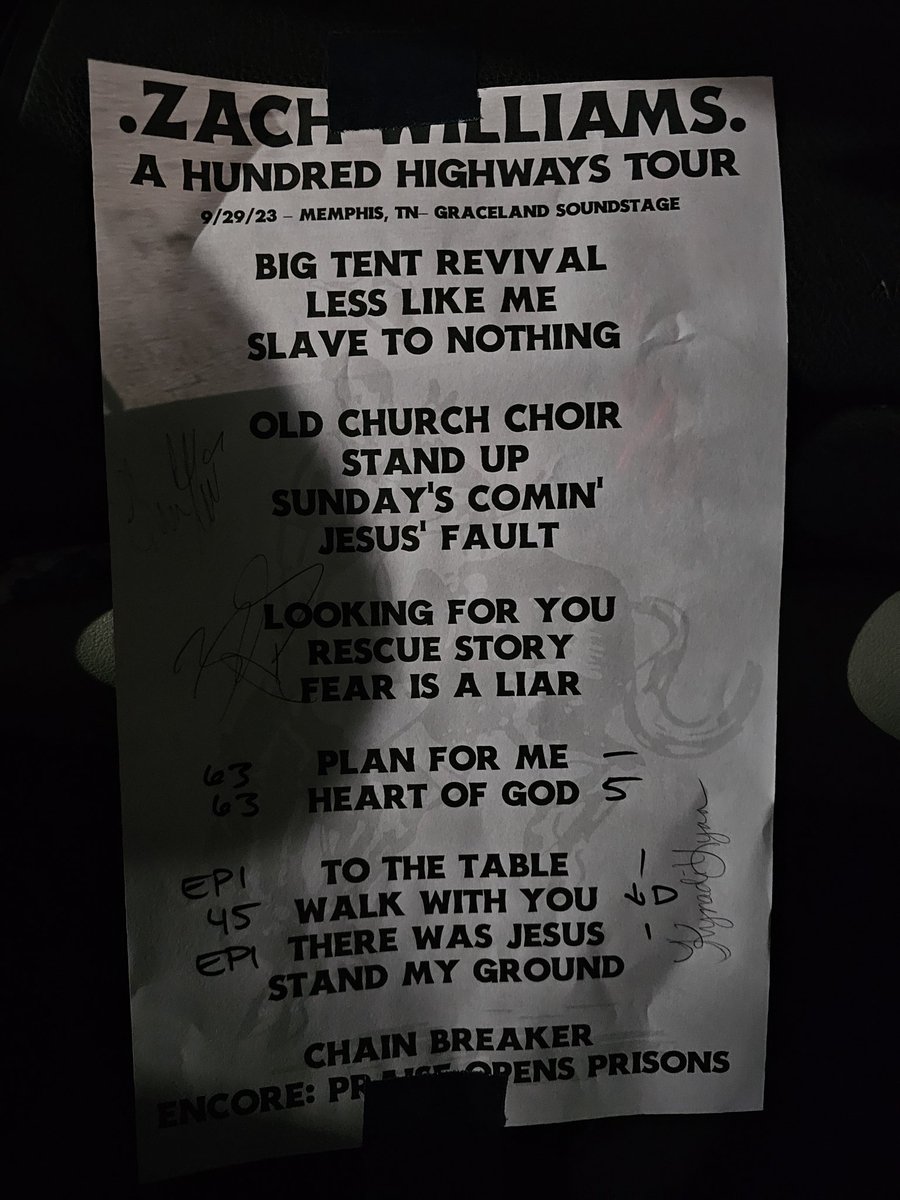 .ZACH WILLIAMS.
A HUNDRED HIGHWAYS TOUR
9/29/23 – MEMPHIS, TN– GRACELAND SOUNDSTAGE
BIG TENT REVIVAL
LESS LIKE ME
SLAVE TO NOTHING
OLD CHURCH CHOIR
STAND UP
SUNDAY'S COMIN'
JESUS' FAULT
LOOKING FOR YOU
RESCUE STORY
FEAR IS A LIAR
63 PLAN FOR ME –
63 HEART OF GOD 5
EP1 TO THE TABLE –
45 WALK WITH YOU D
EP1 THERE WAS JESUS -
STAND MY GROUND
CHAIN BREAKER
ENCORE: PRAISE OPENS PRISONS